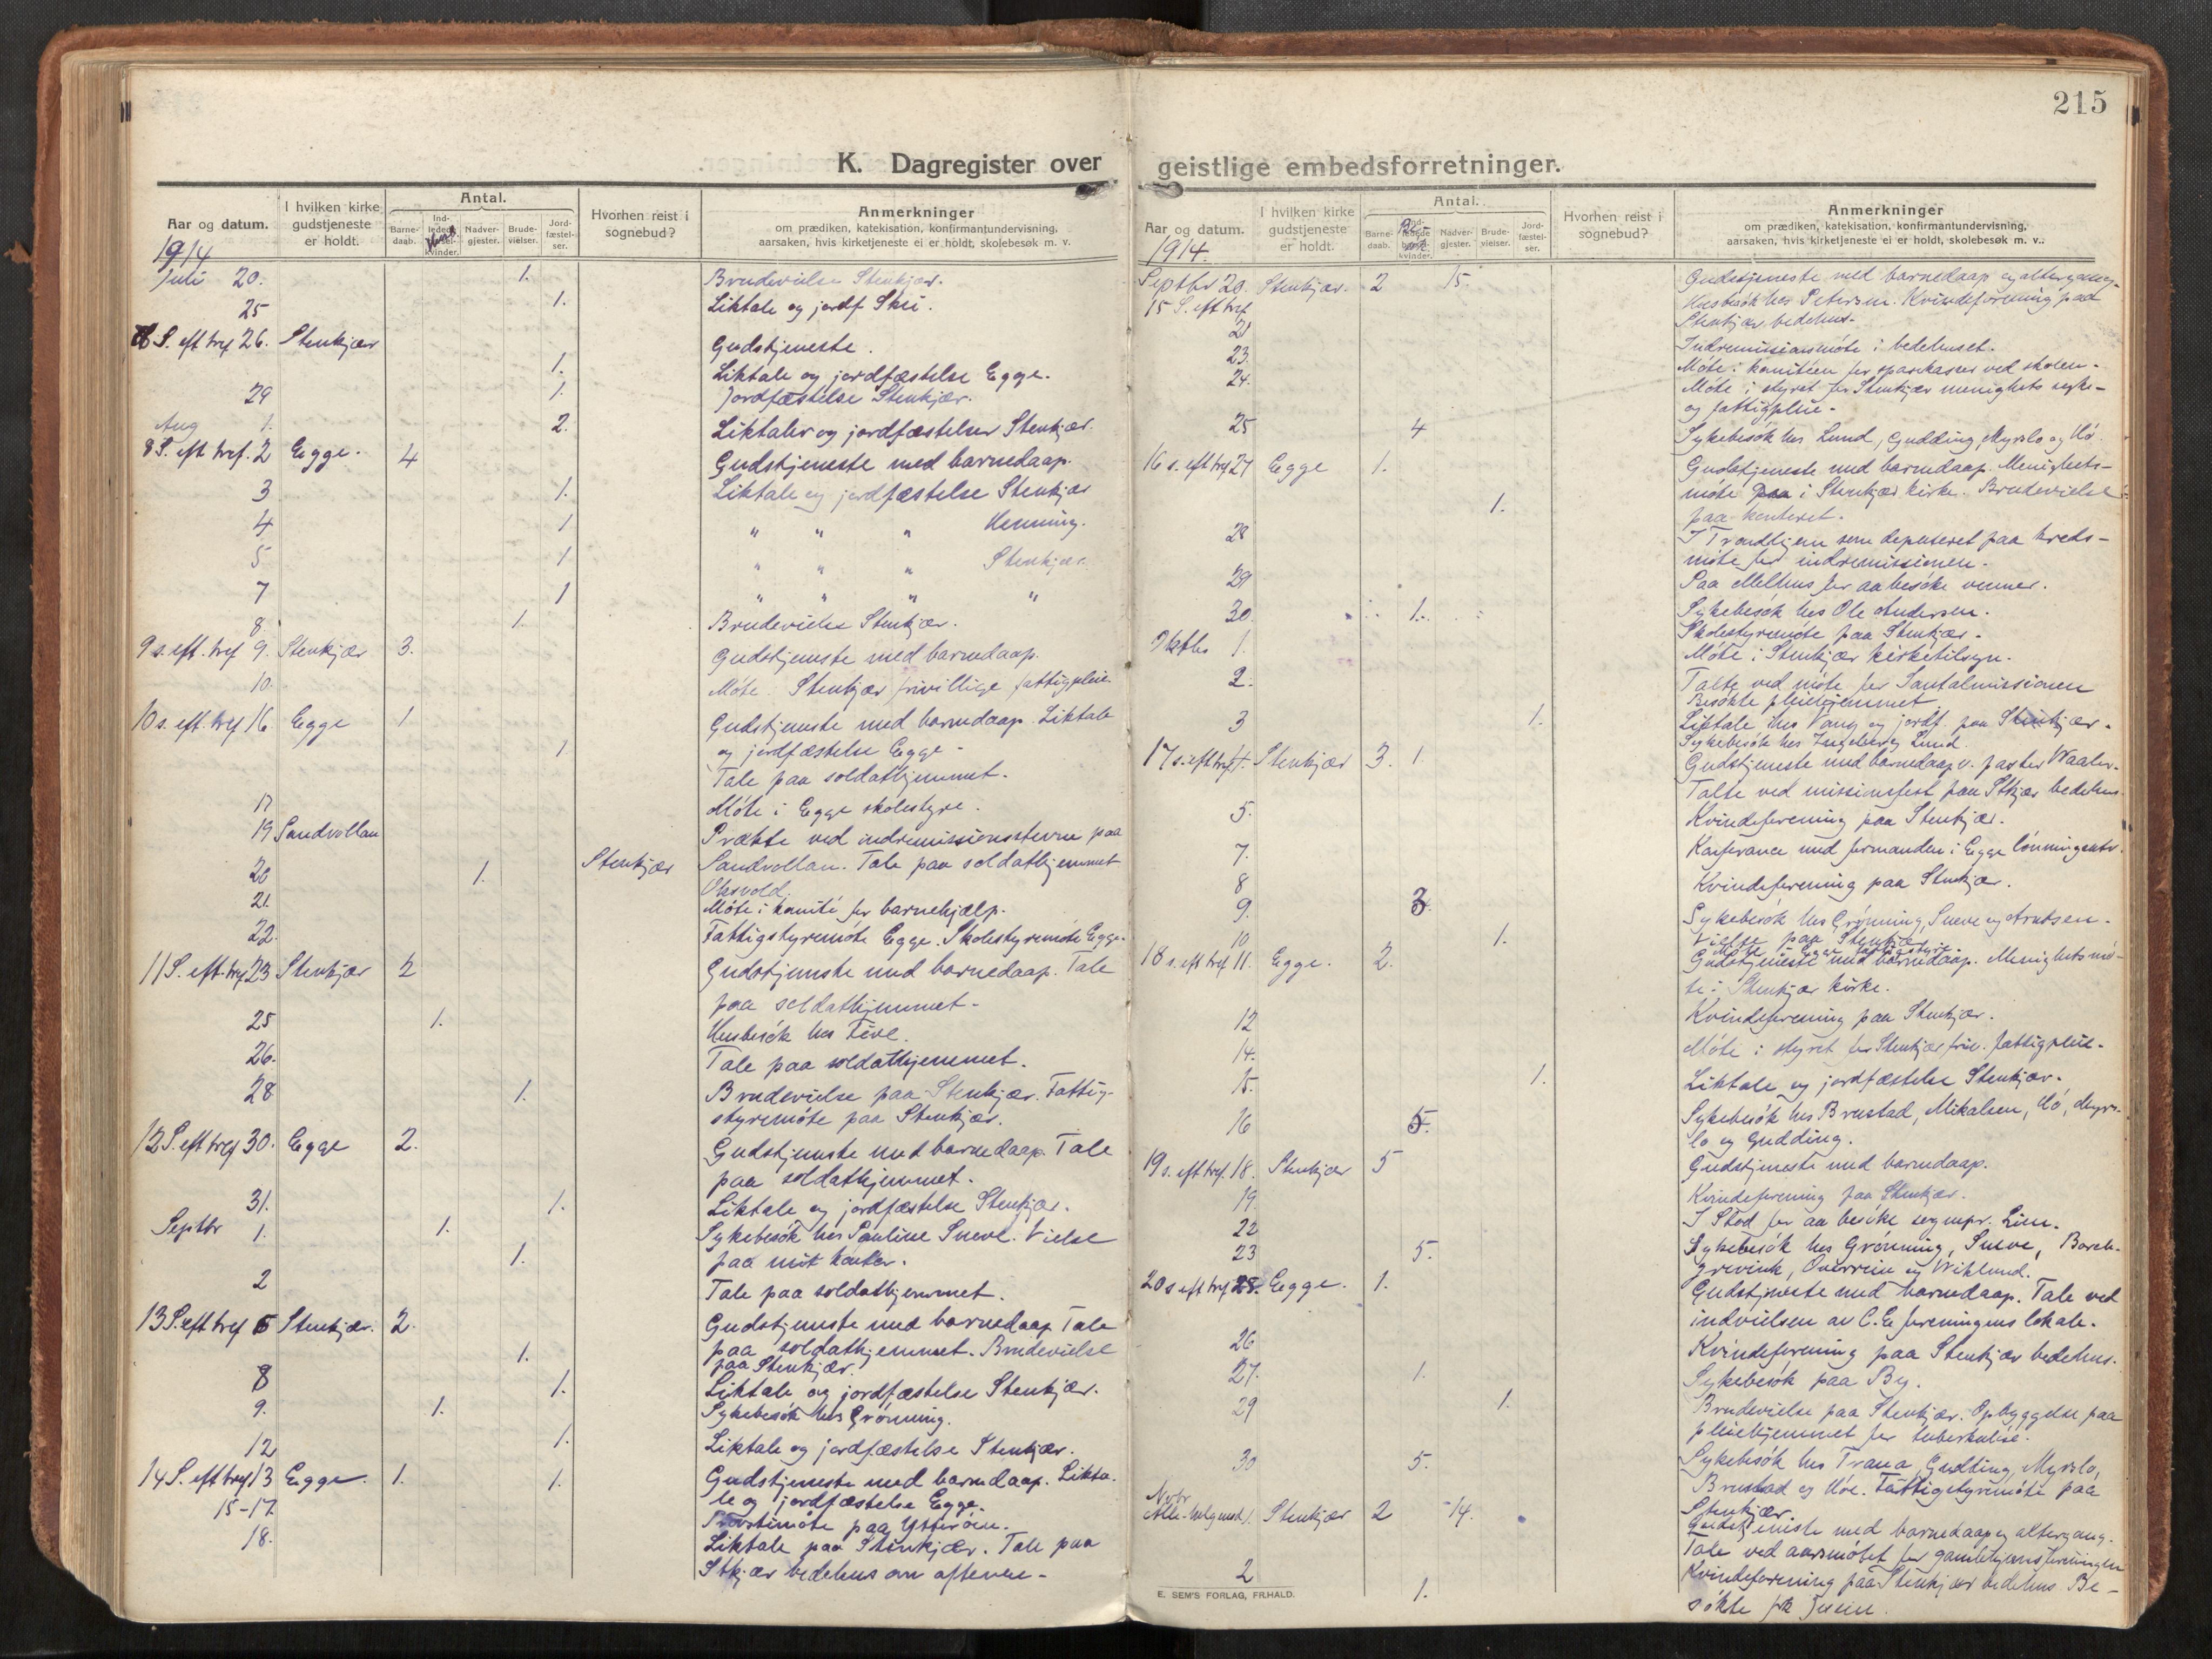 215
K. Dagregister over geistlige embedsforretninger.
Aar og datum.
I hvilken kirke gudstjeneste er holdt.
Antal.
Barne-daab.
kvinder.
Nadver-gjester.
Brude-vielser.
Jord-fæstel-ser.
Hvorhen reist i sognebud?
Anmerkninger
om prædiken, katekisation, konfirmantundervisning,
aarsaken, hvis kirketjeneste ei er holdt, skolebesøk m. v.
1914
Juli 20. 1. Brudevielse Stenkjær.
25 1. Liktale og jordf Skei.
S. eft tref 26. Stenkjær Gudstjeneste.
1. Liktale og jordfæstelse Egge.
29 1. Jordfæstelse Stenkjær.
Aug 1. 2. Liktaler og jordfæstelser Stenkjær.
8 S. eft tref. 2 Egge. 4 Gudstjeneste med barnedaap.
3 1. Liktale og jordfæstelse Stenkjær
4 1 " " " Henning.
5 1 " " " Stenkjær.
7 1 " " " "
8. 1. Brudevielse Stenkjær.
9 s. eft. tref 9. Stenkjær 3. Gudstjeneste med barnedaap.
10. Möte. Stenkjær frivillige fattigpleie
10 s. eft. tref 16 Egge 1 Gudstjeneste med barnedaap. Liktale
1. og jordfæstelse Egge.
Tale paa soldathjemmet.
17 Möte i Egge skolestyre.
19 Sandvollan Prækte ved indremissionsstevne paa
20 1. Stenkjær Sandvollan. Tale paa soldathjemmet
21. Möte i komité for barnehjælp.
22. Fattigstyremöte Egge. Skolestyremöte Egge.
11 S. eft tref 23 Stenkjær 2 Gudstjeneste med barnedaap. Tale
paa soldathjemmet.
25 1. Husbesök hos Five.
26. Tale paa soldathjemmet.
28 1. Brudevielse paa Stenkjær. Fattig-
styremöte paa Stenkjær.
12 S. eft tref 30. Egge 2. Gudstjeneste med barnedaap. Tale
paa soldathjemmet.
31. 1. Liktale og jordfæstelse Stenkjær.
Septbr 1. 1. Sykebesök hos Pauline Sneve. Vielse
1. paa mit kontor.
2 Tale paa soldathjemmet.
13 S. eft tref 6 Stenkjær. 2. Gudstjeneste med barnedaap Tale
1. paa soldathjemmet. Brudevielse
paa Stenkjær.
8 1. Liktale og jordfæstelse Stenkjær.
9. 1. Sykebesök hos Grönning.
12 1. Liktale og jordfæstelse Stenkjær.
14 S. eft tref 13 Egge. 1. 1. Gudstjeneste med barnedaap. Likta-
le og jordfæstelse Egge.
15-17. Prostimöte paa Ytteröen.
18. Liktale paa Stenkjær. Tale paa
Stkjær bedehus om aftenen-
Aar og datum.
I hvilken kirke gudstjeneste er holdt.
Antal.
Barne-daab.
kvinder.
Nadver-gjester.
Brude-vielser.
Jord-fæstel-ser.
Hvorhen reist i sognebud?
Anmerkninger
om prædiken, katekisation, konfirmantundervisning,
aarsaken, hvis kirketjeneste ei er holdt, skolebesøk m. v.:
1914.
Septbr 20. Stenkjær. 2 15. Gudstjeneste med barnedaap og altergang.
15 S. eft tref Husbesök hos Petersen. Kvindeforening paa
Stenkjær bedehus.
21 Indremissionsmöte i bedehuset.
23. Möte i komitéen for sparekasser ved skolen.
24. Möte i styret for Stenkjær menighets syke-
og fattigpleie.
25 4 Sykebesök hos Lund, Gudding, Myrslo og Hö.
16 s. eft tref 27 Egge 1. Gudstjeneste med barnedaap. Menighets-
möte i Stenkjær kirke. Brudevielse
1. paa kontoret.
28 I Trondhjem som deputeret paa kreds-
möte for indremissionen.
29 Paa Melhus for aa besöke venner.
30 1. Sykebesök hos Ole Andersen.
Skolestyremöte paa Stenkjær.
Oktbr 1. Möte i Stenkjær kirketilsyn.
2. Talte ved möte for Santalmissionen
Besökte pleiehjemmet
3 1. Liktale hos Vang og jordf. paa Stenkjær.
Sykebesök hos Ingeborg Lund.
17 s. eft tref 4. Stenkjær 3. 1 Gudstjeneste med barnedaap v. pastor Waaler.
Talte ved missionsfest paa Stkjær bedehus
5. Kvindeforening paa Stenkjær.
7. Konferance med formanden i Egge lönningsutv.
8 Kvindeforening paa Stenkjær.
9. 3. Sykebesök hos Grönning, Sneve og Arntsen.
10 1. Vielse paa Stenkjær
Möte i Egge fattigstyre.
18 s. eft tref 11. Egge. 2. Gudstjeneste med barnedaap. Menighetsmö-
te i Stenkjær kirke.
12 Kvindeforening paa Stenkjær.
14. Möte i styret for Stenkjær friv. fattigpleie.
15. 1. Liktale og jordfæstelse Stenkjær.
16 5. Sykebesök hos Brustad, Mikalsen, Hö, Myrs-
lo og Gudding.
19 s. eft tref. 18. Stenkjær 5 Gudstjeneste med barnedaap.
19. Kvindeforening paa Stenkjær.
22 I Stod for aa besöke sognepr. Lien.
23 5. Sykebesök hos Grönning, Sneve, Borch-
grevink, Overrein og Wiklund.
20 s eft tref 25. Egge. 1. Gudstjeneste med barnedaap. Tale ved
indvielsen av C.E. foreningens lokale.
26 Kvindeforening paa Stenkjær bedehus.
27. 1. Sykebesök paa By.
29 1. Brudevielse paa Stenkjær. Opbyggelse paa
pleiehjemmet for tuberkulöse.
30 5. Sykebesök hos Trana, Gudding, Myrslo,
Brustad og Höe. Fattigstyremöte paa
Stenkjær.
Novbr
Alle-helgensd 1. Stenkjær 2 14. Gudstjeneste med barnedaap og altergang.
Tale ved aarsmötet for gamlehjemsforeningen
2 Kvindeforening paa Stenkjær bedehus. Be-
1. sökte frk
E. SEM'S FORLAG, FR.HALD.